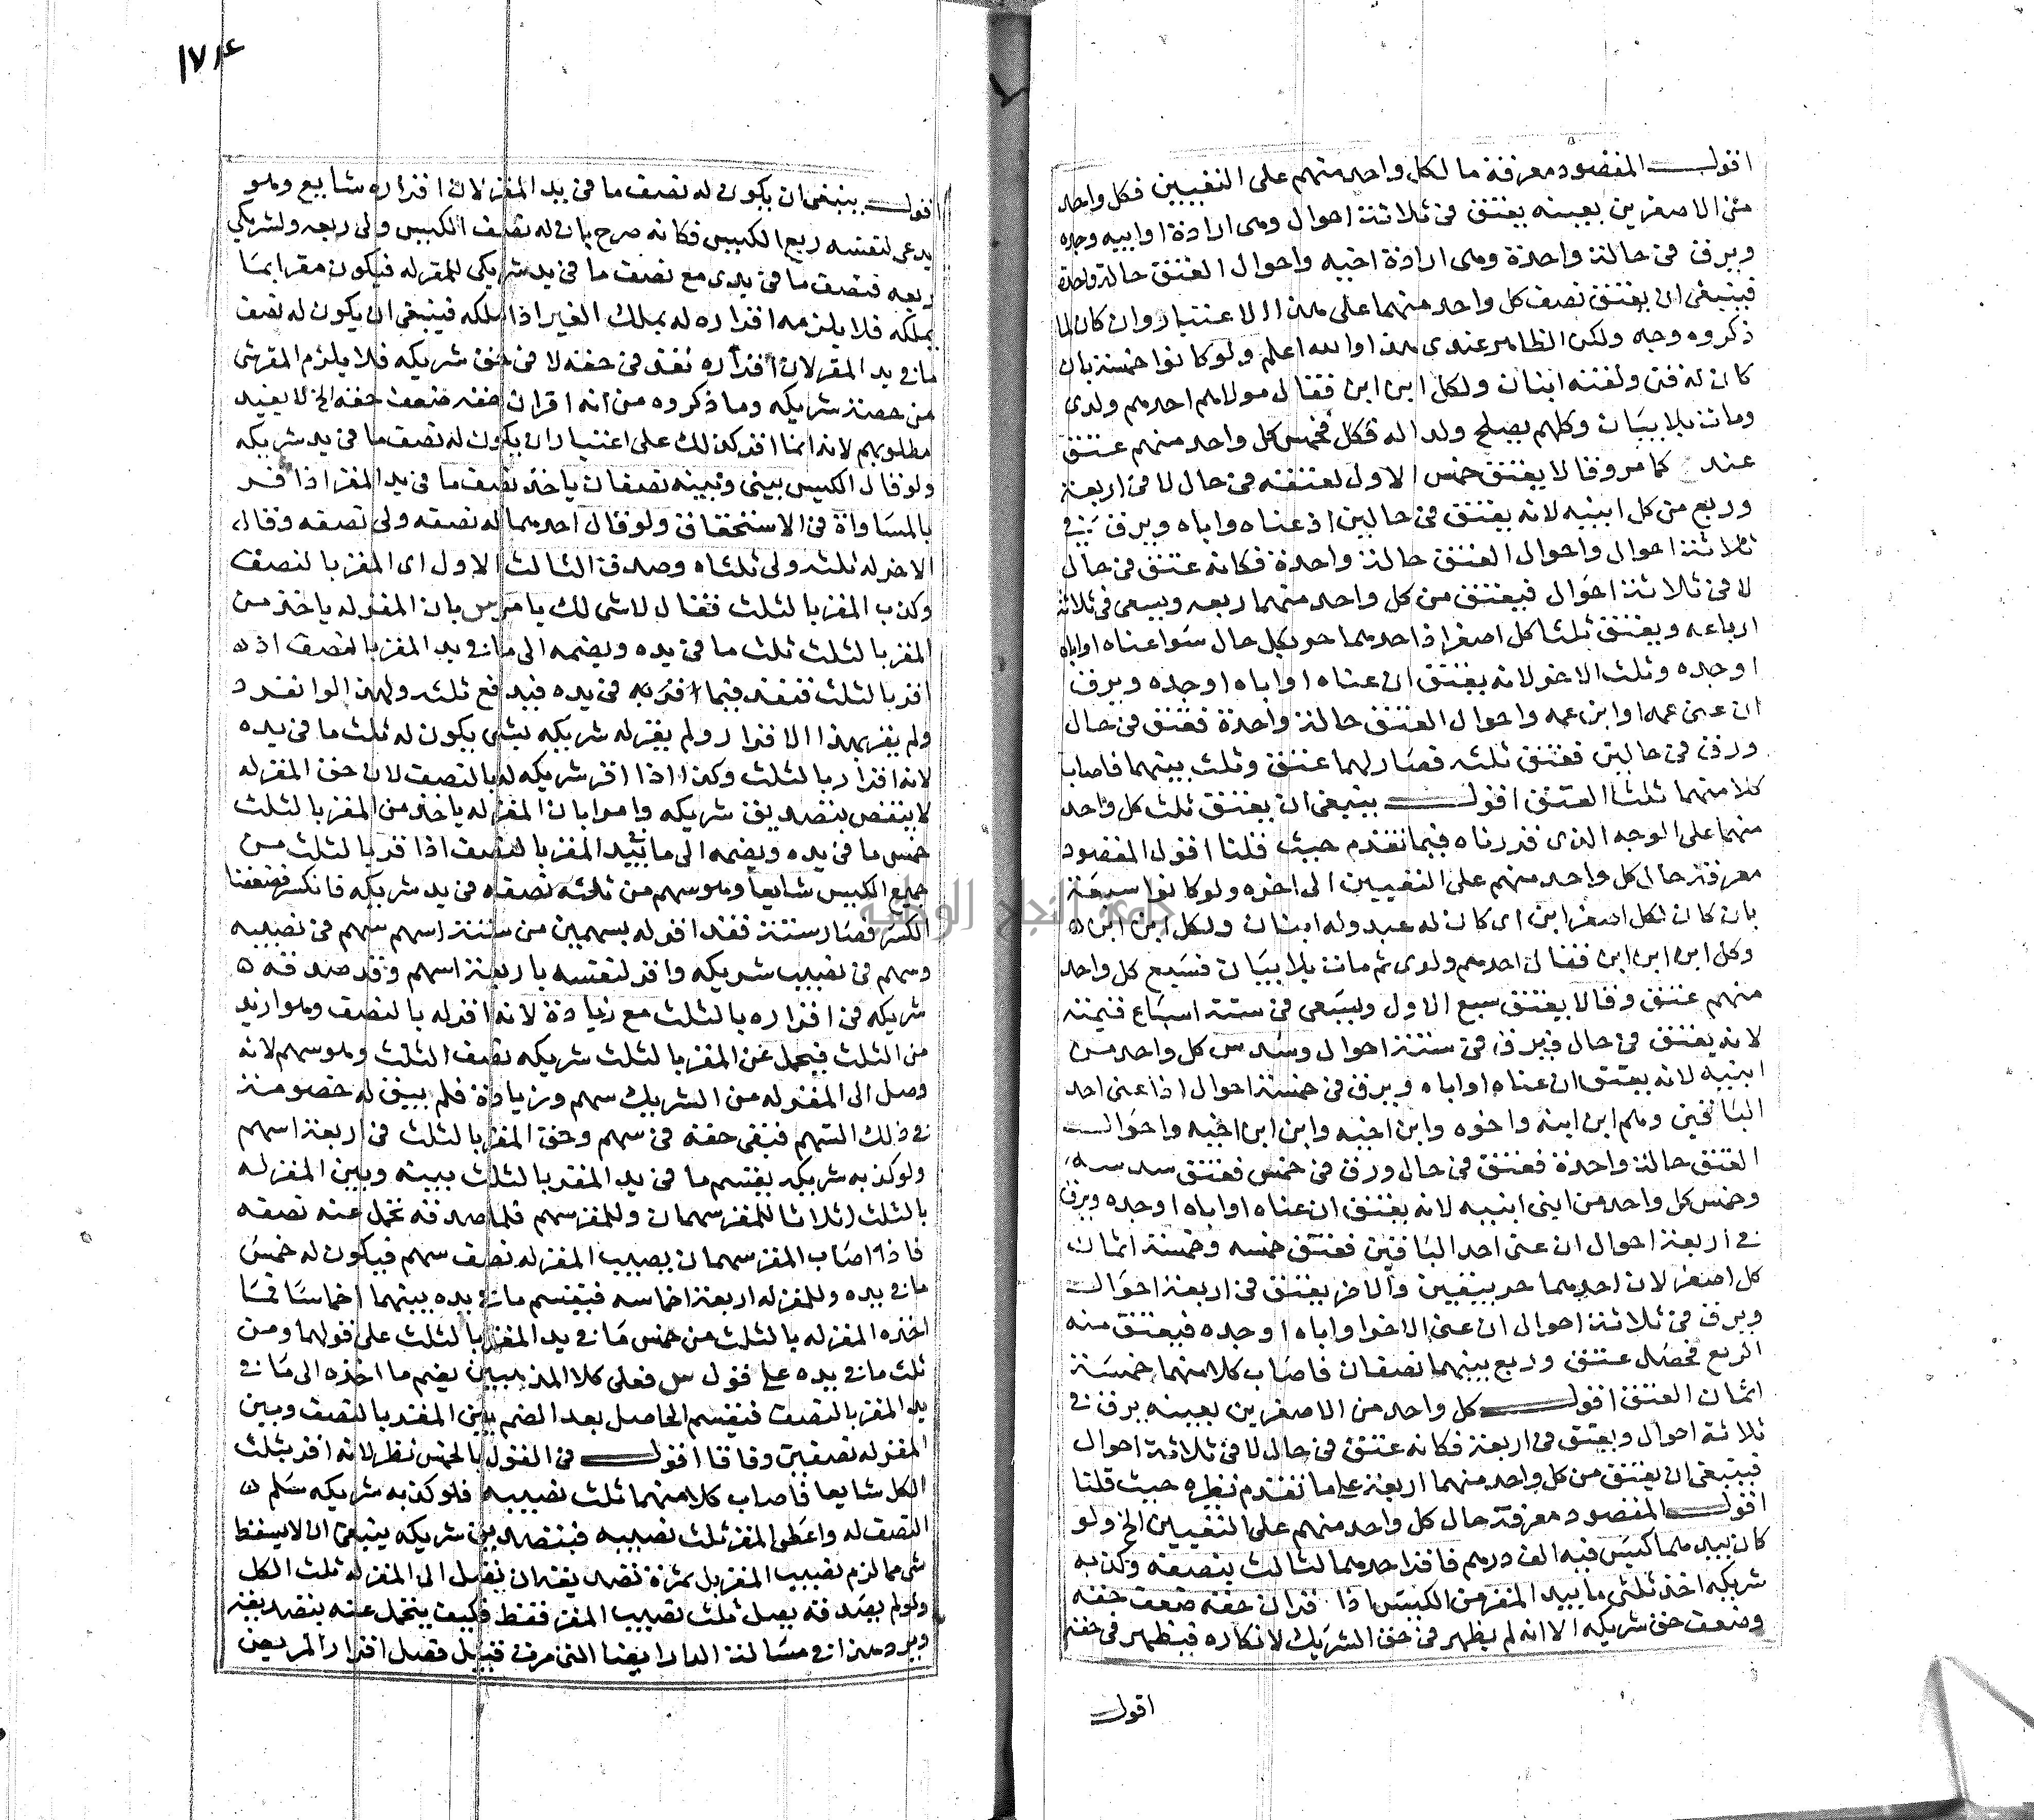 اقول المقصود معرفة ما لكل واحد منهم على التعيين فكل واحد
من الاصغرين بعينه يعتق في ثلاثة احوال وهى ارادة او ابيه وجده
ويرق في حالة واحدة وهى ارادة اخيه واحوال العتق حالة واحدة
فينبغى ان يعتق نصف كل واحد منهما على هذا الاعتبار وان كان لما
ذكروه وجه ولكن الظاهر عندى هذا والله اعلم ولو كانوا خمسة بان
كان له قن ولقنه ابنان ولكل ابن ابن فقال مولاهم احدهم ولدى
ومات بلا بيان وكلهم يصلح ولدا له فكل فخمس كل واحد منهم عتق
عند كما مر وقالا يعتق خمس الاول لعتقه في حال لا في اربعة
وربع من كل ابنيه لانه يعتق في حالين اذ عناه واباه ويرق في
ثلاثة احوال واحوال العتق حالة واحدة فكانه عتق في حال
لا في ثلاثة احوال فيعتق من كل واحد منهما ربعه ويسعى في ثلاثة
ارباعه ويعتق ثلثا كل اصغر اذ احدهما حر بكل حال سوا عناه او اباه
او جده وثلث الاخر لانه يعتق ان عناه او اباه او جده ويرق
ان عنى عمه او ابن عمه واحوال العتق حالة واحدة فعتق في حال
ورق في حالين فعتق ثلثه فصار لهما عتق وثلث بينهما فاصاب
كلا منهما ثلثا العتق اقول ينبغى ان يعتق ثلث كل واحد
منهما على الوجه الذى قررناه فيما تقدم حيث قلنا اقول المقصود
معرفة حال كل واحد منهم على التعيين الى اخره ولو كانوا سبعة
بان كان لكل اصغر ابن اى كان له عبد وله ابنان ولكل ابن ابن
وكل ابن ابن ابن فقال احدهم ولدى ثم مات بلا بيان فسبع كل واحد
منهم عتق وقالا يعتق سبع الاول ويسعى في ستة اسباع قيمته
لانه يعتق في حال ويرق في ستة احوال وسدس كل واحد من
ابنيه لانه يعتق ان عناه او اباه ويرق في خمسة احوال اذا عنى احد
الباقين وهم ابن ابنه واخوه وابن اخيه وابن ابن اخيه واحوال
العتق حالة واحدة فعتق في حال ورق في خمس فعتق سدسه
وخمس كل واحد من ابنى ابنيه لانه يعتق ان عناه او اباه او جده ويرق
في اربعة احوال ان عنى احد الباقين فعتق خمسه وخمسة اثمان
كل اصغر لان احدهما حر بيقين والاخر يعتق في اربعة احوال
ويرق في ثلاثة احوال ان عنى الاخر او اباه او جده فيعتق منه
الربع فحصل عتق وربع بينهما نصفان فاصاب كلا منهما خمسة
اثمان العتق اقول كل واحد من الاصغرين بعينه يرق في
ثلاثة احوال ويعتق في اربعة فكانه عتق في حال لا في ثلاثة احوال
فينبغى ان يعتق من كل واحد منهما اربعة على ما تقدم نظره حيث قلنا
اقول المقصود معرفة حال كل واحد منهم على التعيين الخ ولو
كان بيدهما كيس فيه الف درهم فاقر احدهما لثالث بنصفه وكذبه
شريكه اخذ ثلثى ما بيد المقر من الكيس اذا قر ان حقه ضعف حقه
وضعف حق شريكه الا انه لم يظهر في حق الشريك لانكاره فيظهر في حقه
اقول
اقول ينبغى ان يكون له نصف ما في يد المقر لان اقراره شايع وهو
يدعى لنفسه ربع الكيس فكانه صرح بان له نصف الكيس ولى ربعه ولشريكى
ربعه فنصف ما في يدى مع نصف ما في يد شريكى للمقر له فيكون مقرا بما
يملكه فلا يلزمه اقراره له بملك الغير اذا ملكه فينبغى ان يكون له نصف
ما في يد المقر لان اقراره نفذ في حقه لا في حق شريكه فلا يلزم المقر شى
من حصة شريكه وما ذكروه من انه اقر ان حقه ضعف حقه الخ لا يفيد
مطلوبهم لانه انما اقر كذلك على اعتبار ان يكون له نصف ما في يد شريكه
ولو قال الكيس بينى وبينه نصفان ياخذ نصف ما في يد المقر اذا قر
بالمساواة في الاستحقاق ولو قال احدهما له نصفه ولى نصفه وقال
الاخر له ثلثه ولى ثلثاه وصدق الثالث الاول اى المقر بالنصف
وكذب المقر بالثلث فقال لا شى لك يامر س بان المقر له ياخذ من
المقر بالثلث ثلث ما في يده ويضمه الى ما في يد المقر بالنصف اذ
اقر بالثلث فنفذ فيما اقر به في يده فيدفع ثلثه ولهذا لو انفرد
ولم يقر بهذا الاقرار ولم يقر له شريكه بشى يكون له ثلث ما في يده
لانه اقرار بالثلث وكذا اذا اقر شريكه له بالنصف لان حق المقر له
لا ينقص بتصديق شريكه وامرا بان المقر له ياخذ من المقر بالثلث
خمس ما في يده ويضمه الى ما بيد المقر بالنصف اذا قر بالثلث من
جميع الكيس شايعا وهو سهم من ثلاثة نصفه في يد شريكه فانكسر فضعفنا
الكسر فصار ستة فقد اقر له بسهمين من ستة اسهم سهم في نصيبه
وسهم في نصيب شريكه واقر لنفسه باربعة اسهم وقد صدقه
شريكه في اقراره بالثلث مع زيادة لانه اقر له بالنصف وهو ازيد
من الثلث فيحمل عن المقر بالثلث شريكه نصف الثلث وهو سهم لانه
وصل الى المقر له من الشريك سهم وزيادة فلم يبق له خصومة
في ذلك السهم فبقى حقه في سهم وحق المقر بالثلث في اربعة اسهم
ولو كذبه شريكه يقتسم ما في يد المقر بالثلث بينه وبين المقر له
بالثلث اثلاثا للمقر سهمان وللمقر سهم فلما صدقه تحمل عنه نصفه
فاذا اصاب المقر سهمان يصيب المقر له نصف سهم فيكون له خمس
ما في يده وللمقر له اربعة اخماسه فيقتسم ما في يده بينهما اخماسا فما
اخذه المقر له بالثلث من خمس ما في يد المقر بالثلث على قولهما ومن
ثلث ما في يده على قول س فعلى كلا المذهبين يضم ما اخذه الى ما في
يد المقر بالنصف فيقسم الحاصل بعد الضم بين المقر بالنصف وبين
المقر له نصفين وفاقا اقول في القول بالخمس نظر لانه اقر بثلث
الكل شايعا فاصاب كلا منهما ثلث نصيبه فلو كذبه شريكه سلم
النصف له واعطى المقر ثلث نصيبه فبتصديق شريكه ينبغى ان لا يسقط
شى مما لزم نصيب المقر بل ثمرة تصديقه ان يصل الى المقر له ثلث الكل
ولو لم يصدقه يصل ثلث نصيب المقر فقط فكيف يتحمل عنه بتصديقه
ويرد هذا في مسالة الدار ايضا التى مر في قبيل فصل اقرار المريض